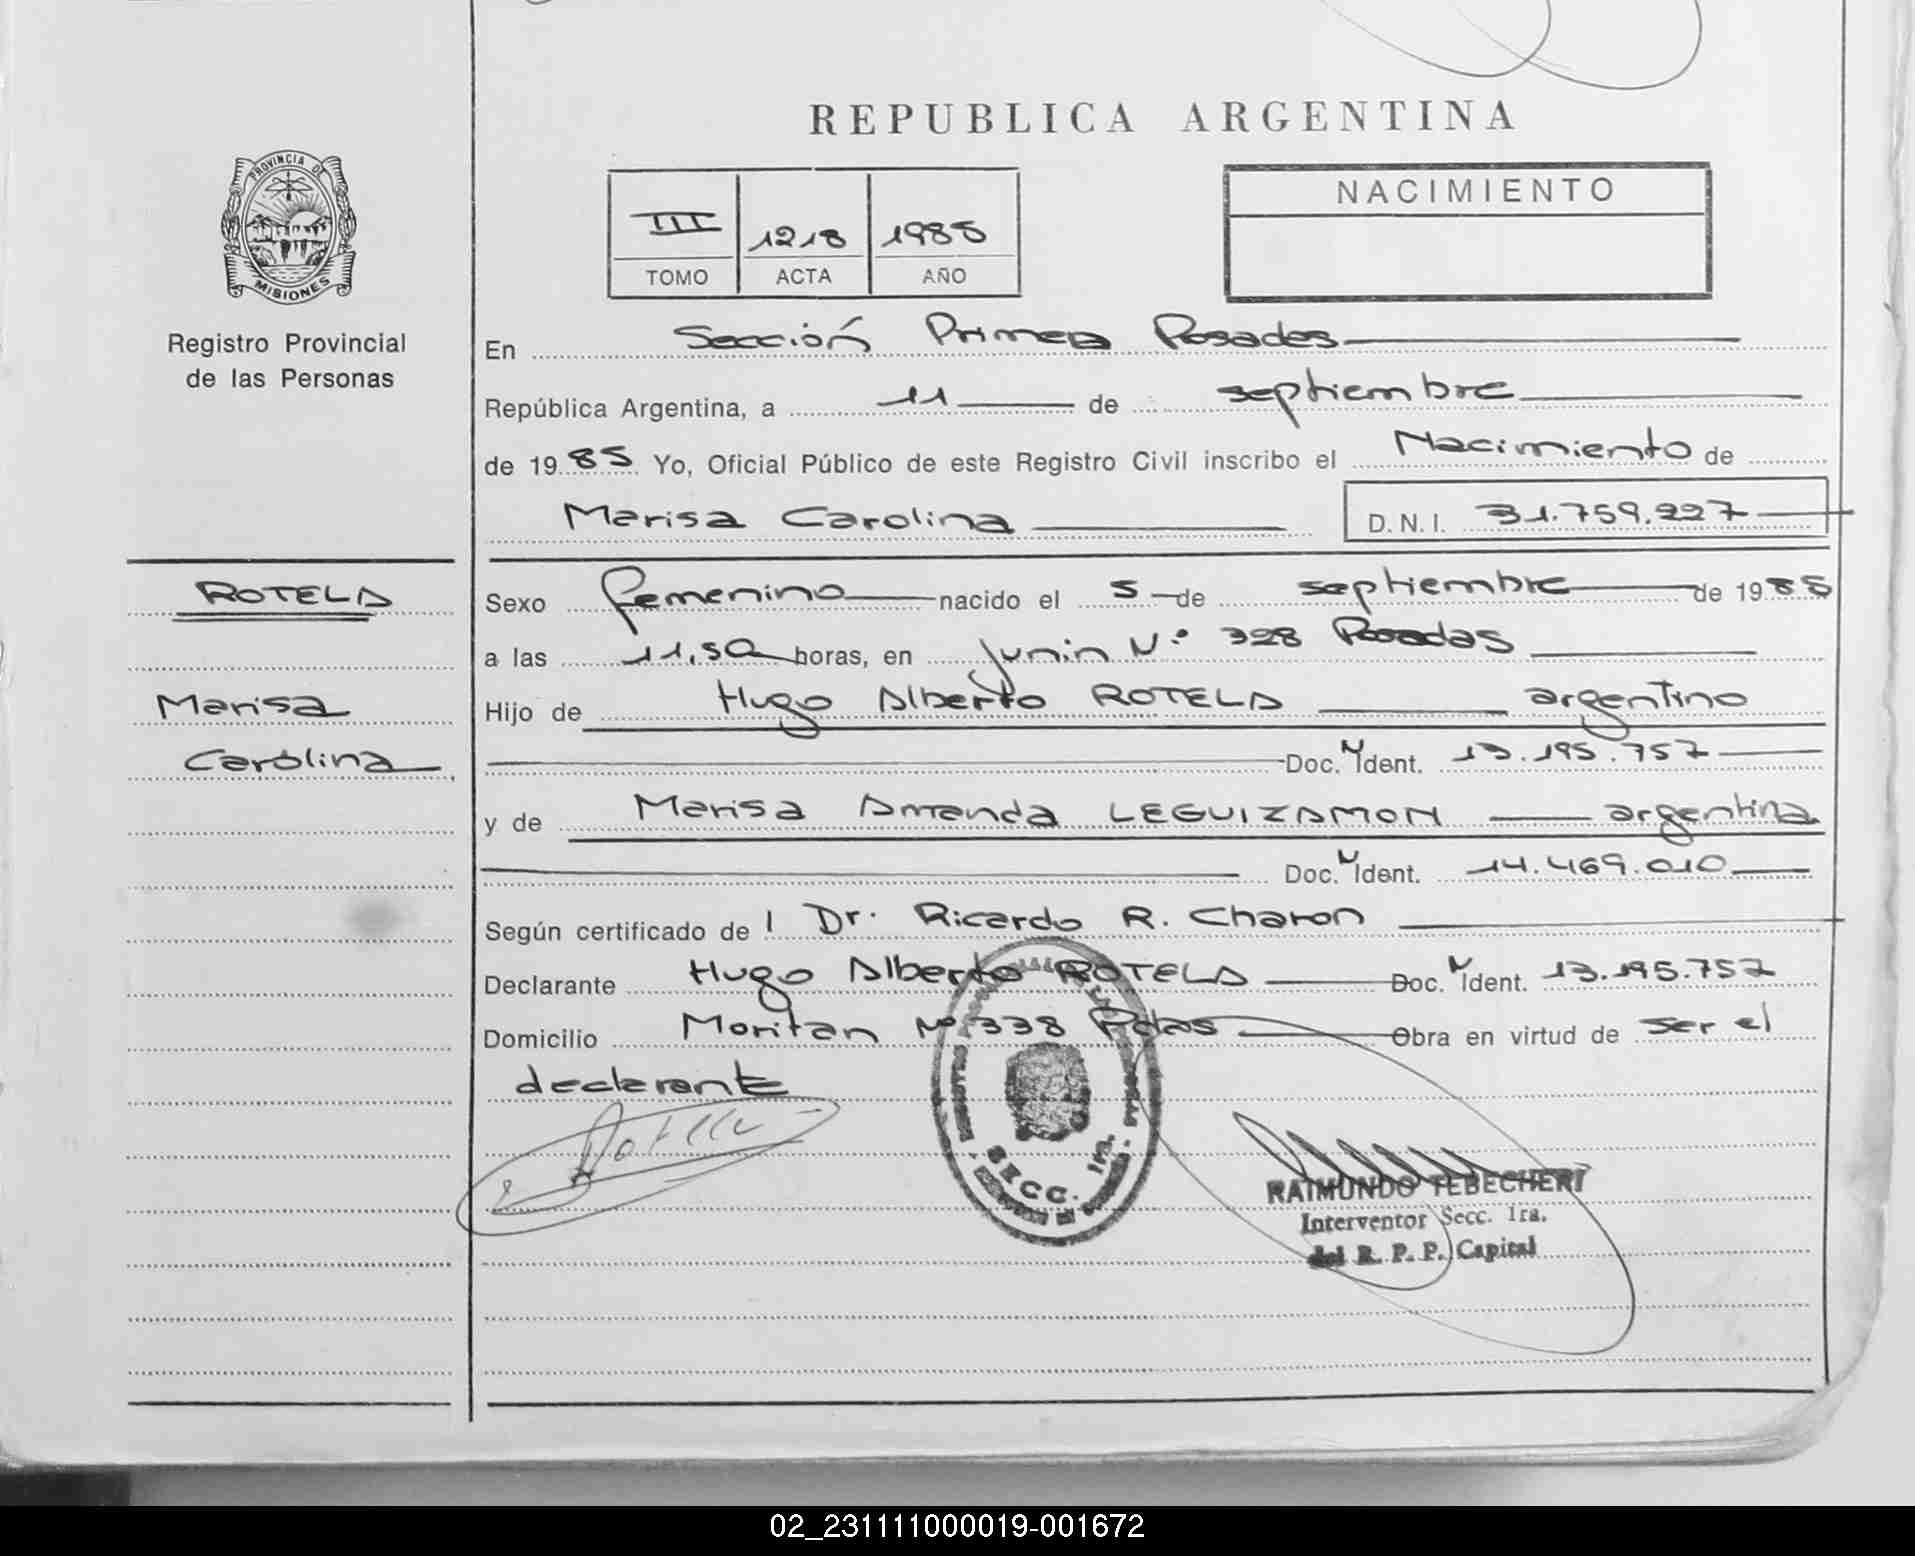 REPUBLICA ARGENTINA
PROVINCIA DE
MISIONES
Registro Provincial
de las Personas
III 1218 1985
TOMO ACTA AÑO
NACIMIENTO
En Sección Primera Posadas
República Argentina, a 11 de septiembre
de 1985 Yo, Oficial Público de este Registro Civil inscribo el Nacimiento de
Marisa Carolina D.N.I. 31.759.227
ROTELA
Marisa
Carolina
Sexo femenino nacido el 5 de septiembre de 1985
a las 11,50 horas, en Junin N° 328 Posadas
Hijo de Hugo Alberto ROTELA argentino
Doc. N Ident. 13.195.757
y de Marisa Amanda LEGUIZAMON argentina
Doc. N Ident. 14.469.010
Según certificado de l Dr. Ricardo R. Charon
Declarante Hugo Alberto ROTELA Doc. N Ident. 13.195.757
Domicilio Moritan N° 338 Pdas Obra en virtud de ser el
declarante
Rotela
SECC. 1ra.
RAIMUNDO TEBECHERI
Interventor Secc. 1ra.
del R. P. P. Capital
02_231111000019-001672